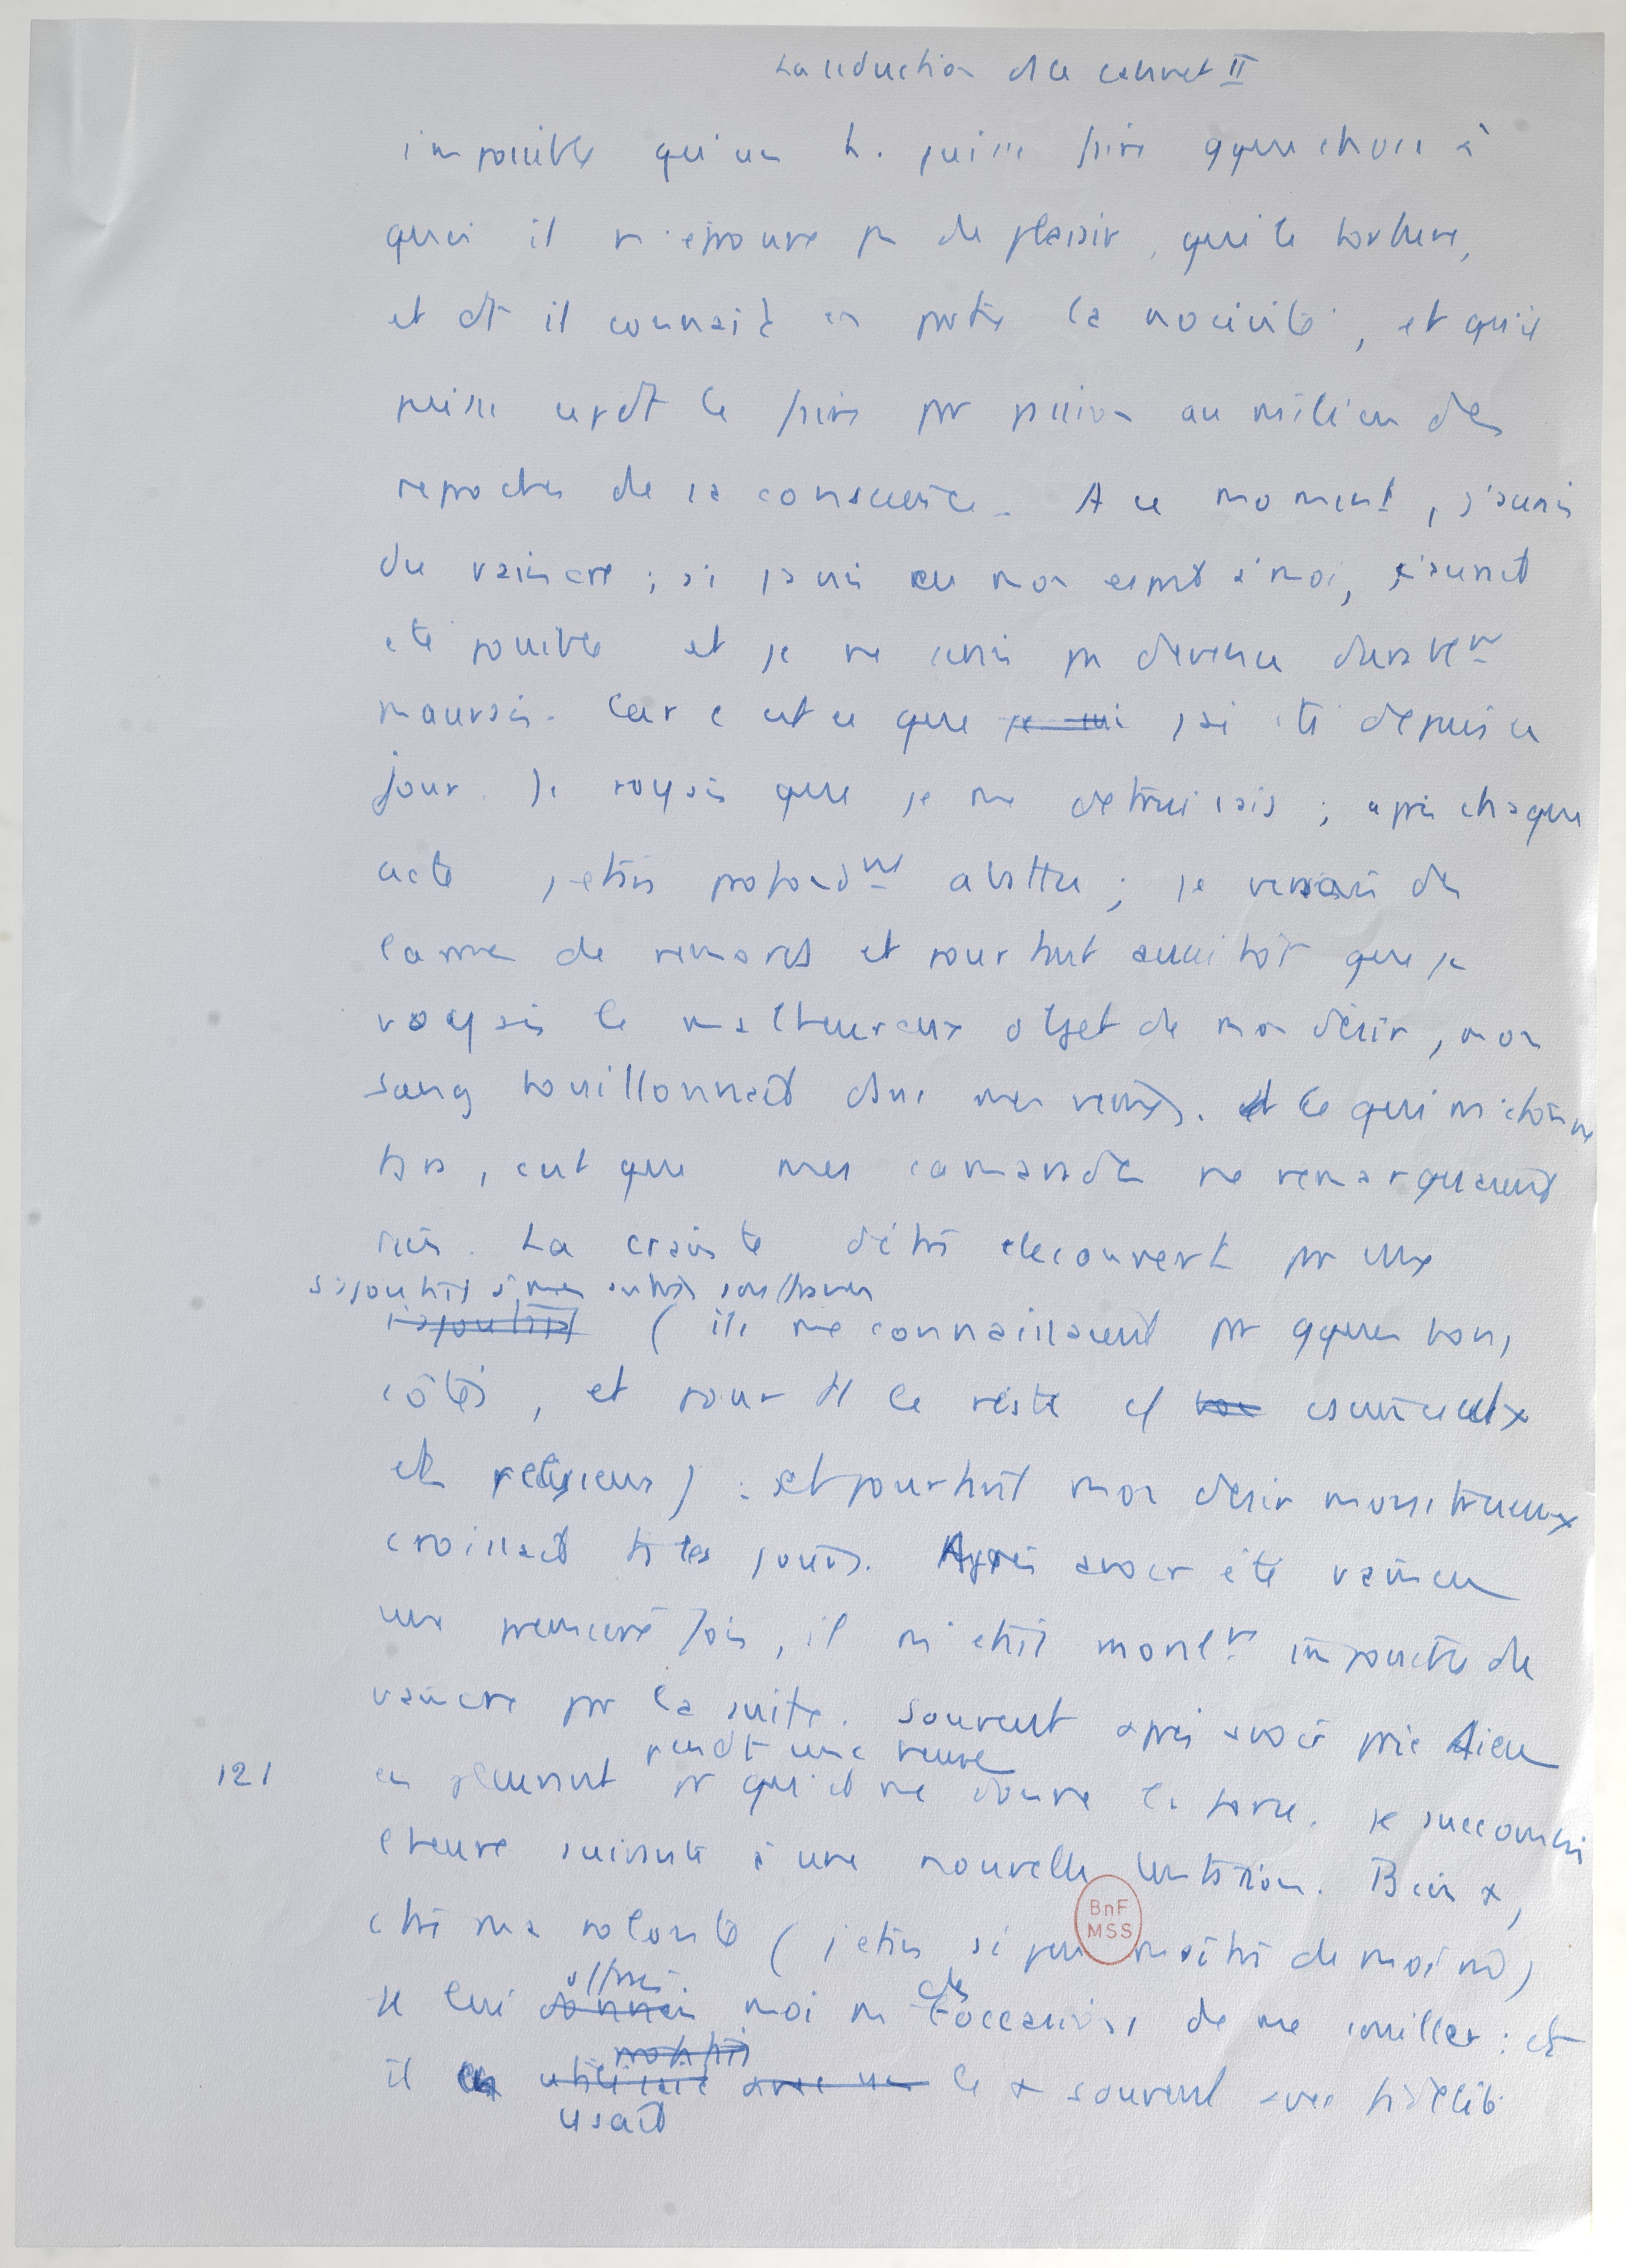 La réduction de le carnet II
impossible qu'un h. puisse faire qque chose à
quoi il n'éprouve pas de plaisir, qui le torture,
et dt il connait en partie la nocivité, et qu'il
puisse cepdt le faire par passion au milieu des
reproches de sa conscience. A ce moment, j'aurais
du vaincre ; si j'avais eu mon esprit à moi, ç'aurait
été possible et je ne serais pas devenu durablemt
mauvais. Car c'est ce que je suis j'ai été depuis ce
jour. Je voyais que je me détruisais ; après chaque
acte j'étais profondmt abattu ; je versais des
larmes de remords et pourtant aussitôt que je
voyais le malheureux objet de mon désir, mon
sang bouillonnait dans mes veines. et Ce qui m'étonne
très, c'est que mes camarades ne remarquaient
rien. La crainte d'être découvert par eux
s'ajoutait à mes autres souffrances
s'ajoutait ( ils me connaissaient par qques bons
côtés, et pour tt le reste cf bon consciencieux
et religieux) : et pourtant mon désir monstrueux
croissait ts les jours. Après avoir été vaincu
une première fois, il m'était moralmt impossible de
vaincre par la suite. Souvent après avoir prié Dieu
pendt une heure
121 en pleurant pr qu'il me donne la force, je succombais
l'heure suivante à une nouvelle tentation. Bien +,
contre ma volonté ( j'étais si peu maître de moi m)
offrais des
je lui donnais moi m l'occasions de me souiller : et
profitait
il en utilisait avec un le + souvent avec fidélité
usait
BnF
MSS